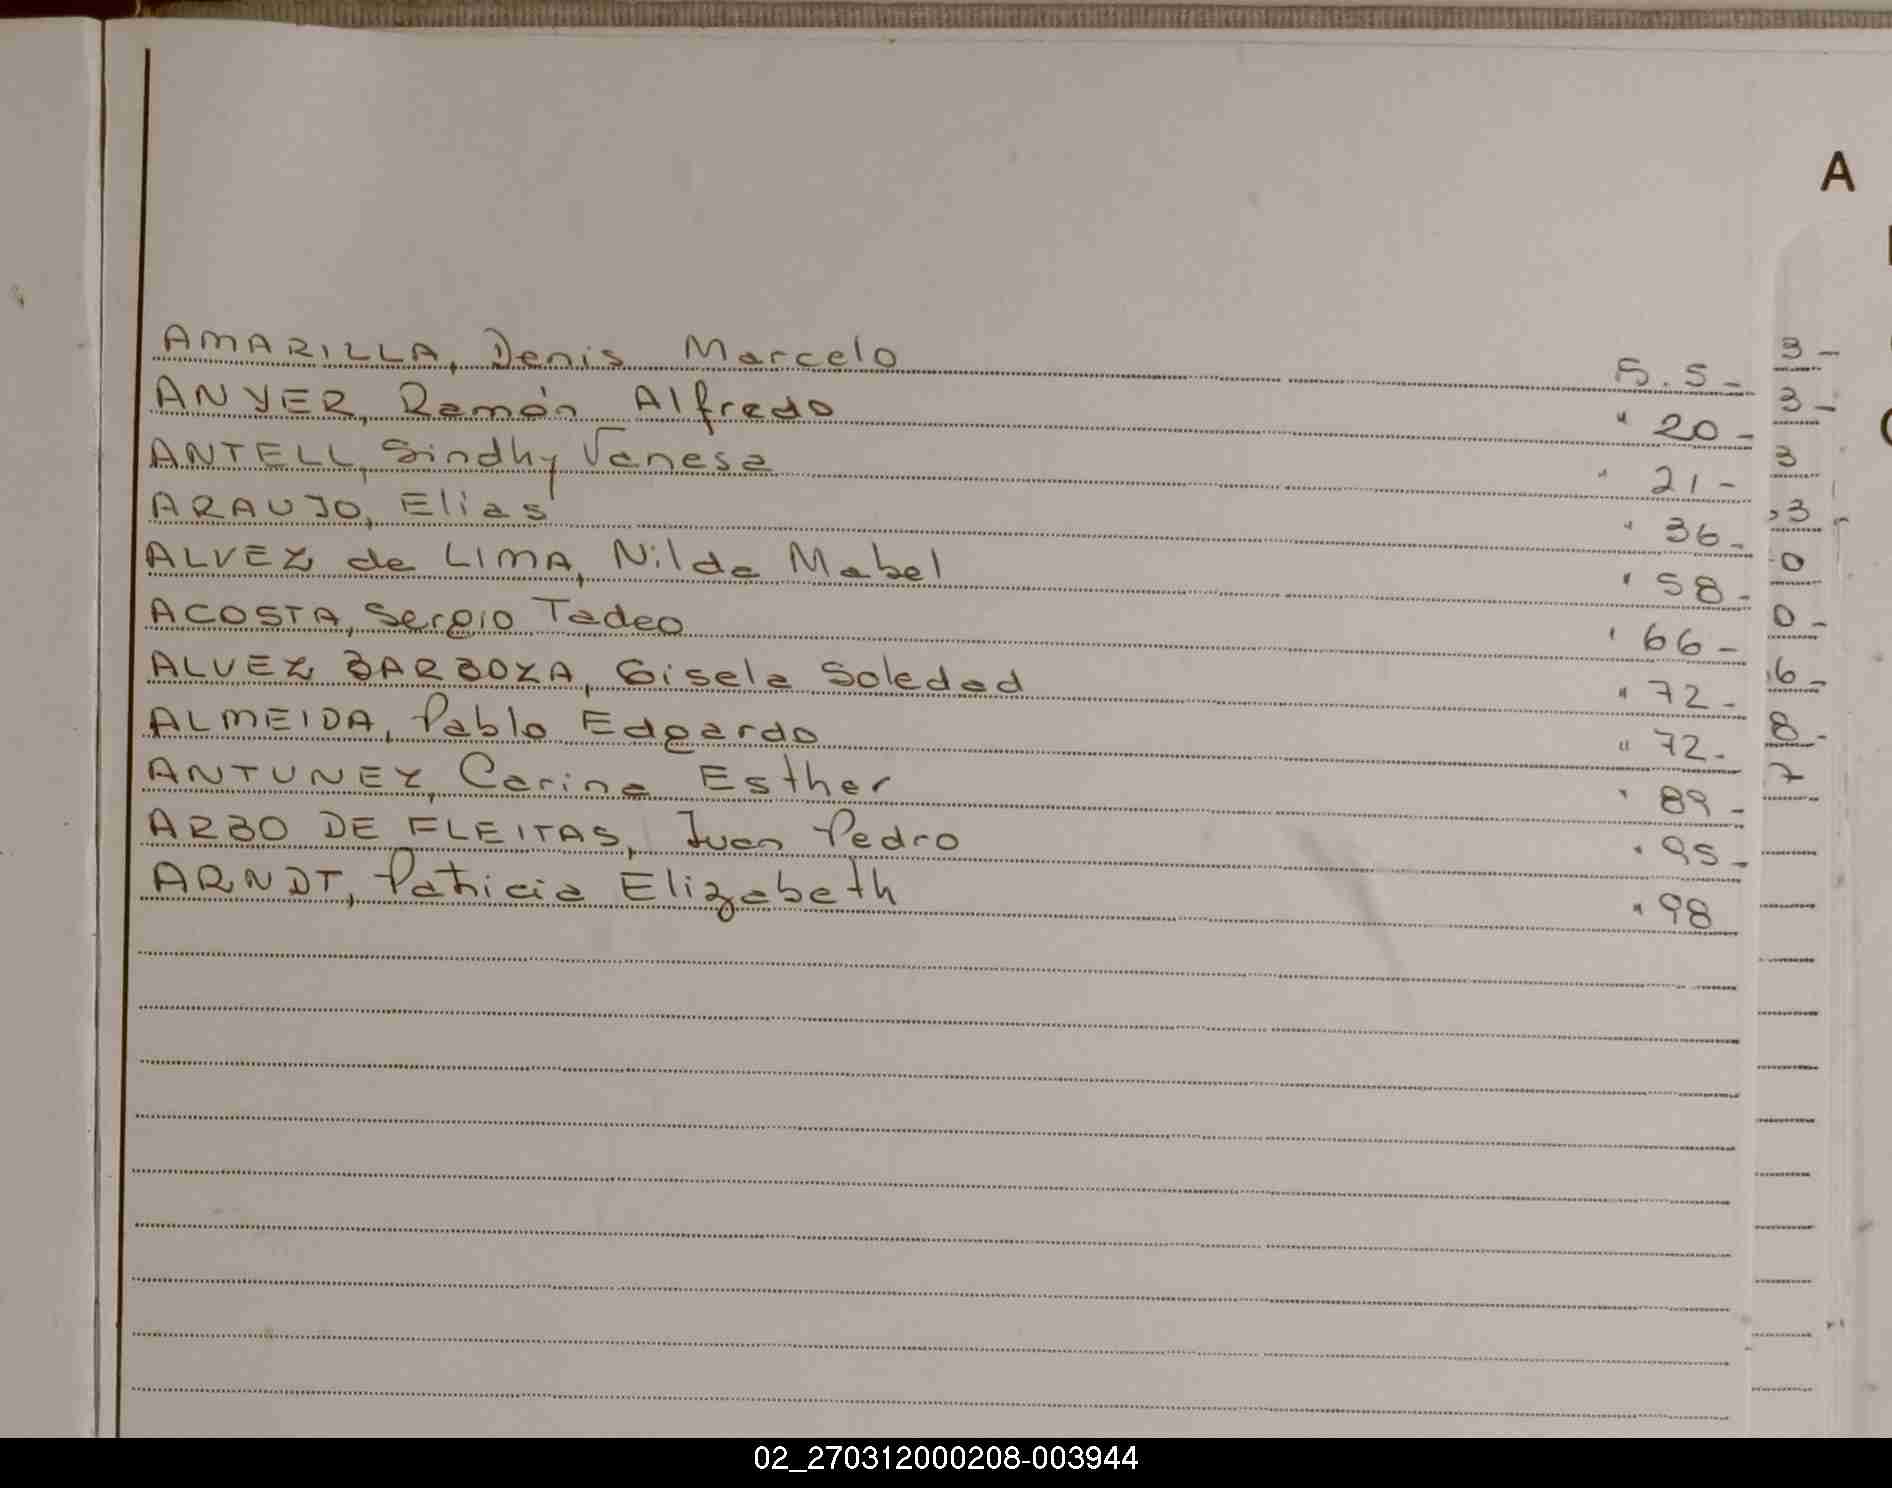 A
AMARILLA, Denis Marcelo 5.5-
ANYER, Ramón Alfredo " 20-
ANTELL, Sindhy Vanesa " 21-
ARAUJO, Elias " 36-
ALVEZ de LIMA, Nilda Mabel " 58-
ACOSTA, Sergio Tadeo " 66-
ALVEZ BARBOZA, Gisela Soledad " 72-
ALMEIDA, Pablo Edgardo " 72-
ANTUNEZ, Carina Esther " 89-
ARBO DE FLEITAS, Juan Pedro " 95-
ARNDT, Patricia Elizabeth " 98
3-
3-
3
3-
0
0-
6-
8-
7
02_270312000208-003944